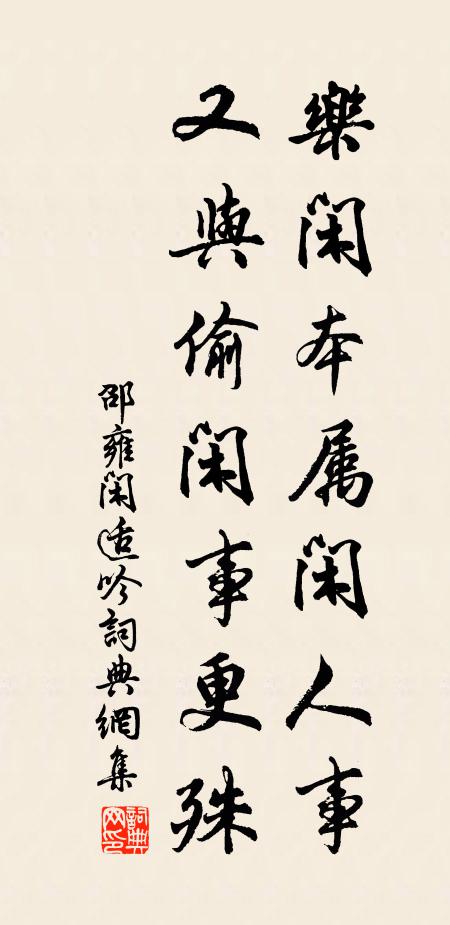 樂閑本属閑人事
又與偷閑事更殊
邵雍閑适吟詞典網集
詞典网印